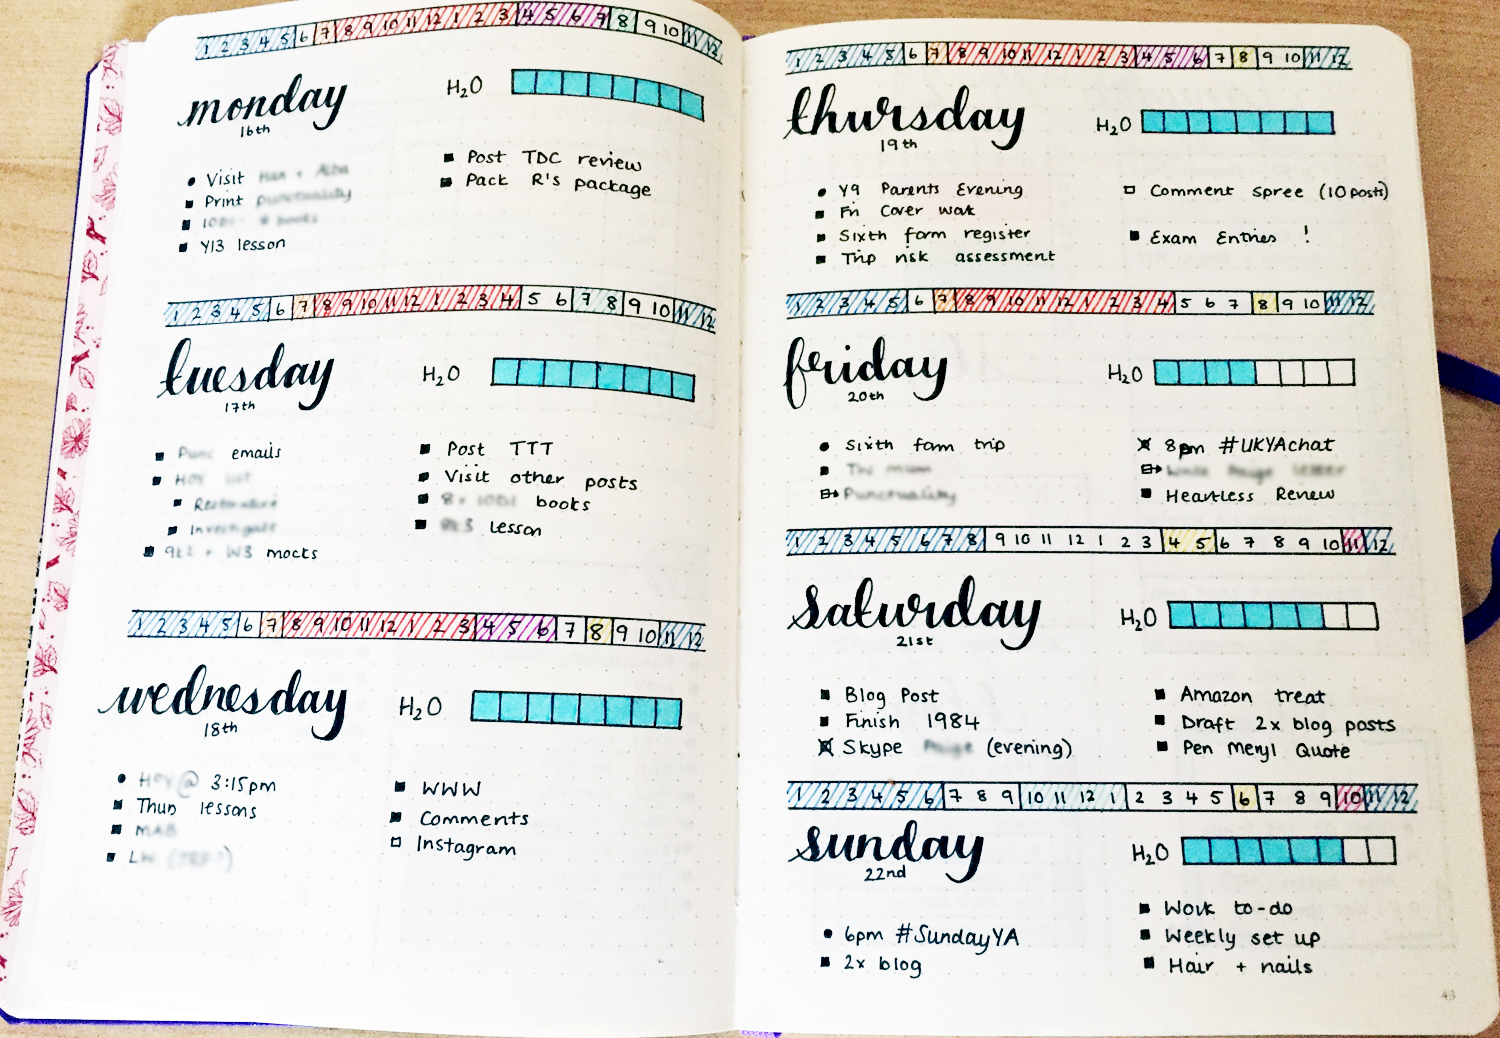 1 2 3 4 5 6 7 8 9 10 11 12 1 2 3 4 5 6 7 8 9 10 11 12
monday
16th
H₂O
Visit
Print
Y13 lesson
Post TDC review
Pack R's package
1 2 3 4 5 6 7 8 9 10 11 12 1 2 3 4 5 6 7 8 9 10 11 12
tuesday
17th
H₂O
emails
Restorative
Investigate
9k2 + W3 mocks
Post TTT
Visit other posts
books
lesson
1 2 3 4 5 6 7 8 9 10 11 12 1 2 3 4 5 6 7 8 9 10 11 12
wednesday
18th
H₂O
HOY @ 3:15pm
Thurs lessons
MAB
WWW
Comments
Instagram
42
1 2 3 4 5 6 7 8 9 10 11 12 1 2 3 4 5 6 7 8 9 10 11 12
thursday
19th
H₂O
Y9 Parents Evening
Fri Cover work
Sixth form register
Trip risk assessment
Comment spree (10 posts)
Exam Entries !
1 2 3 4 5 6 7 8 9 10 11 12 1 2 3 4 5 6 7 8 9 10 11 12
friday
20th
H₂O
Sixth form trip
Punctuality
8pm #UKYAchat
Heartless Review
1 2 3 4 5 6 7 8 9 10 11 12 1 2 3 4 5 6 7 8 9 10 11 12
saturday
21st
H₂O
Blog Post
Finish 1984
Skype (evening)
Amazon treat
Draft 2x blog posts
Pen Meryl Quote
1 2 3 4 5 6 7 8 9 10 11 12 1 2 3 4 5 6 7 8 9 10 11 12
sunday
22nd
H₂O
6pm #SundayYA
2x blog
Work to-do
Weekly set up
Hair + nails
43